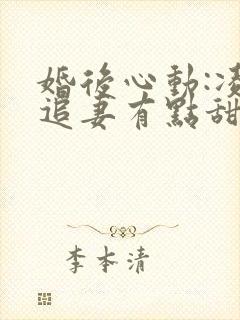 婚後心動:凌
追妻有點甜
李本清